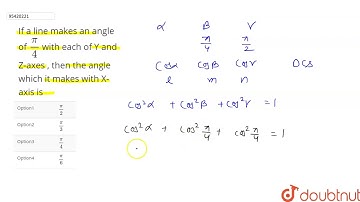 95420221
If a line makes an angle
of π/4 with each of Y and
Z-axes , then the angle
which it makes with X-
axis is
Option1 π/2
Option2
Option3 π/4
Option4
α β γ
π/4 π/2
Cosα cosβ cosγ DCs
l m n
cos²α + cos²β + cos²γ = 1
cos²α + cos²π/4 + cos²π/4 = 1
doubtnut